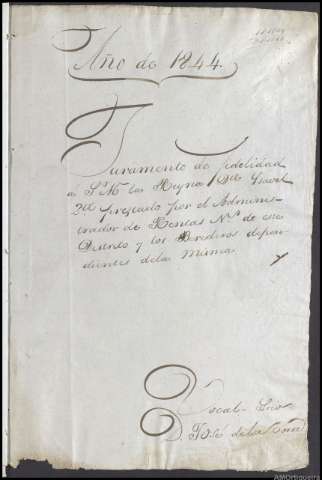 Año de 1844.
Juramento de fidelidad
a S. M. la Reyna Dª Ysavel
2ª prestado por el Adminis-
trador de Rentas N.s de este
Distrito y los Berederos depen-
dientes de la Misma
Escab.
D. José de la
AMOrtigueira